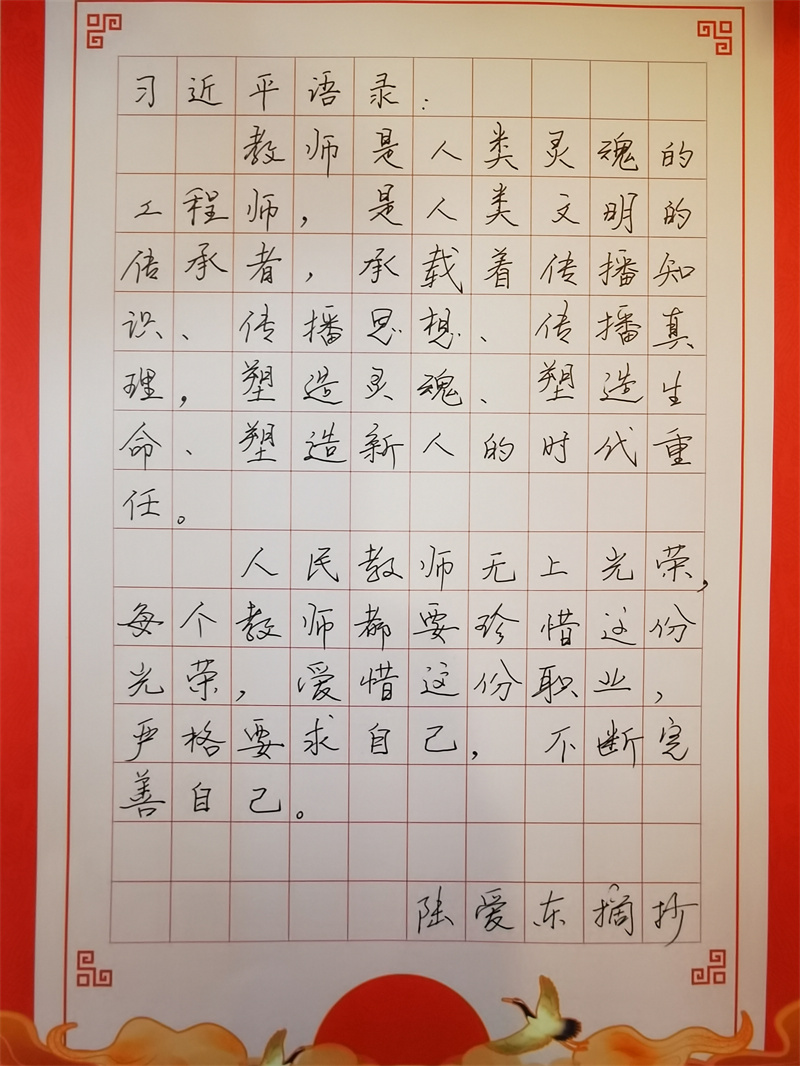 习近平语录：
教师是人类灵魂的
工程师，是人类文明的
传承者，承载着传播知
识、传播思想、传播真
理，塑造灵魂、塑造生
命、塑造新人的时代重
任。
人民教师无上光荣，
每个教师都要珍惜这份
光荣，爱惜这份职业，
严格要求自己，不断完
善自己。
陆爱东摘抄